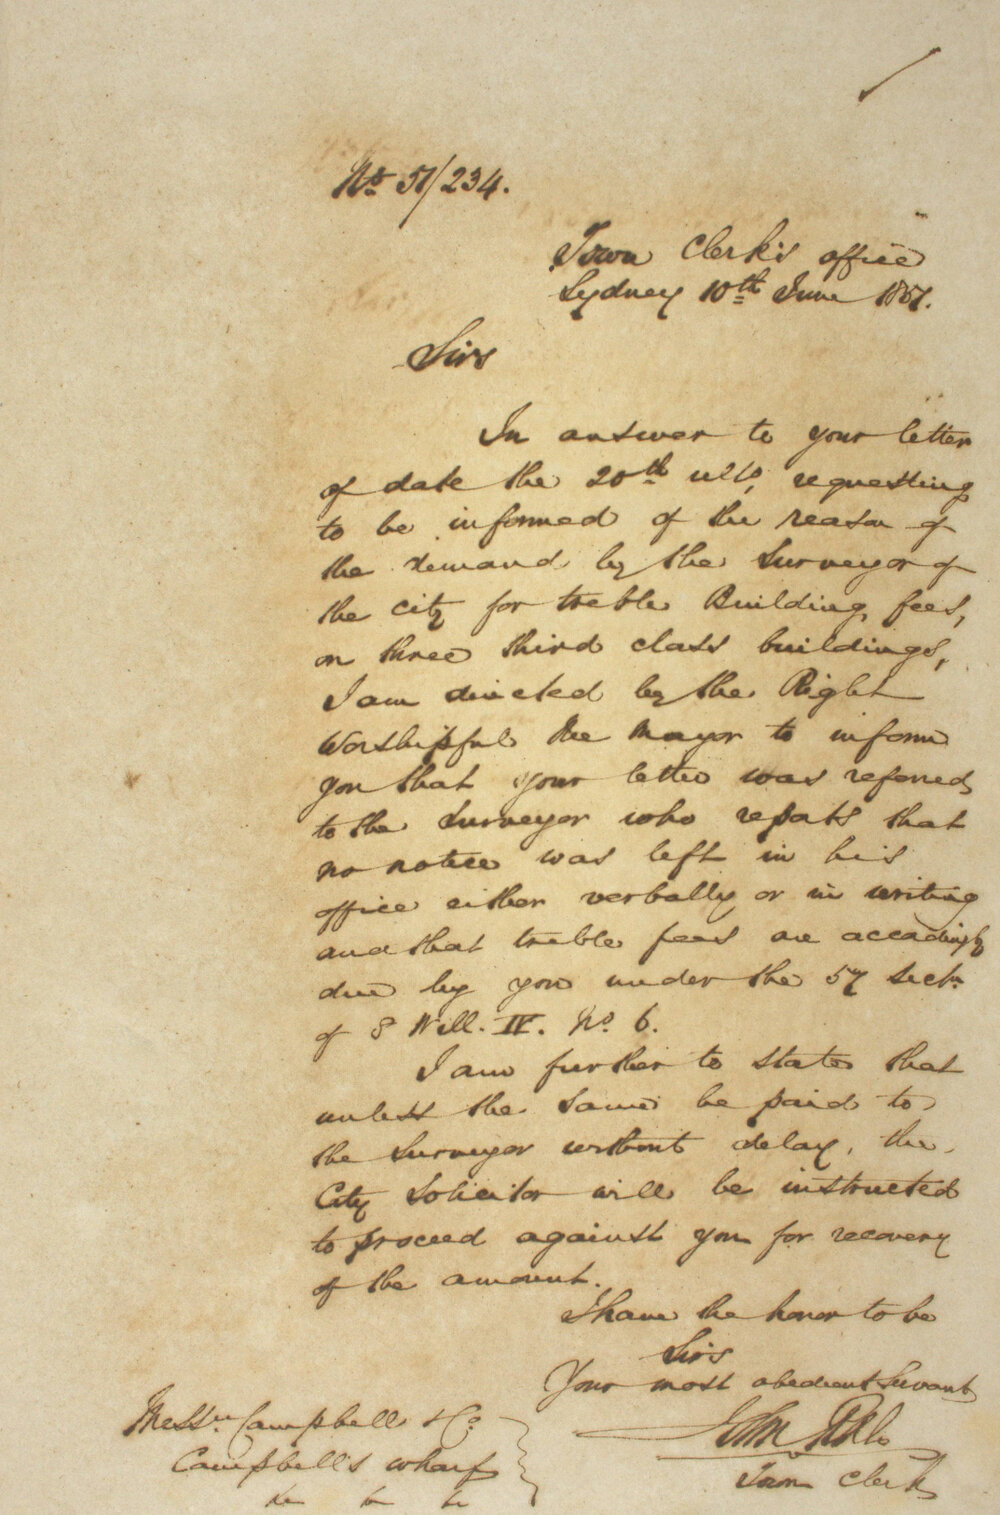 No 51/234.
Town Clerk's office
Sydney 10th June 1851.
Sirs
In answer to your letter
of date the 20th ulto, requesting
to be informed of the reason of
the demand by the Surveyor of
the City for treble Building fees,
on three third class buildings,
I am directed by the Right
Worshipful the Mayor to inform
you that your letter was referred
to the Surveyor who reports that
no notice was left in his
office either verbally or in writing
and that treble fees are accordingly
due by you under the 57 Sectn
of 8 Will. IV. No. 6.
I am further to state that
unless the same be paid to
the Surveyor without delay, the
City Solicitor will be instructed
to proceed against you for recovery
of the amount.
I have the honor to be
Sirs
Your most obedient Servant
John
Town Clerk
Messrs Campbell & Co.
Campbell's wharf